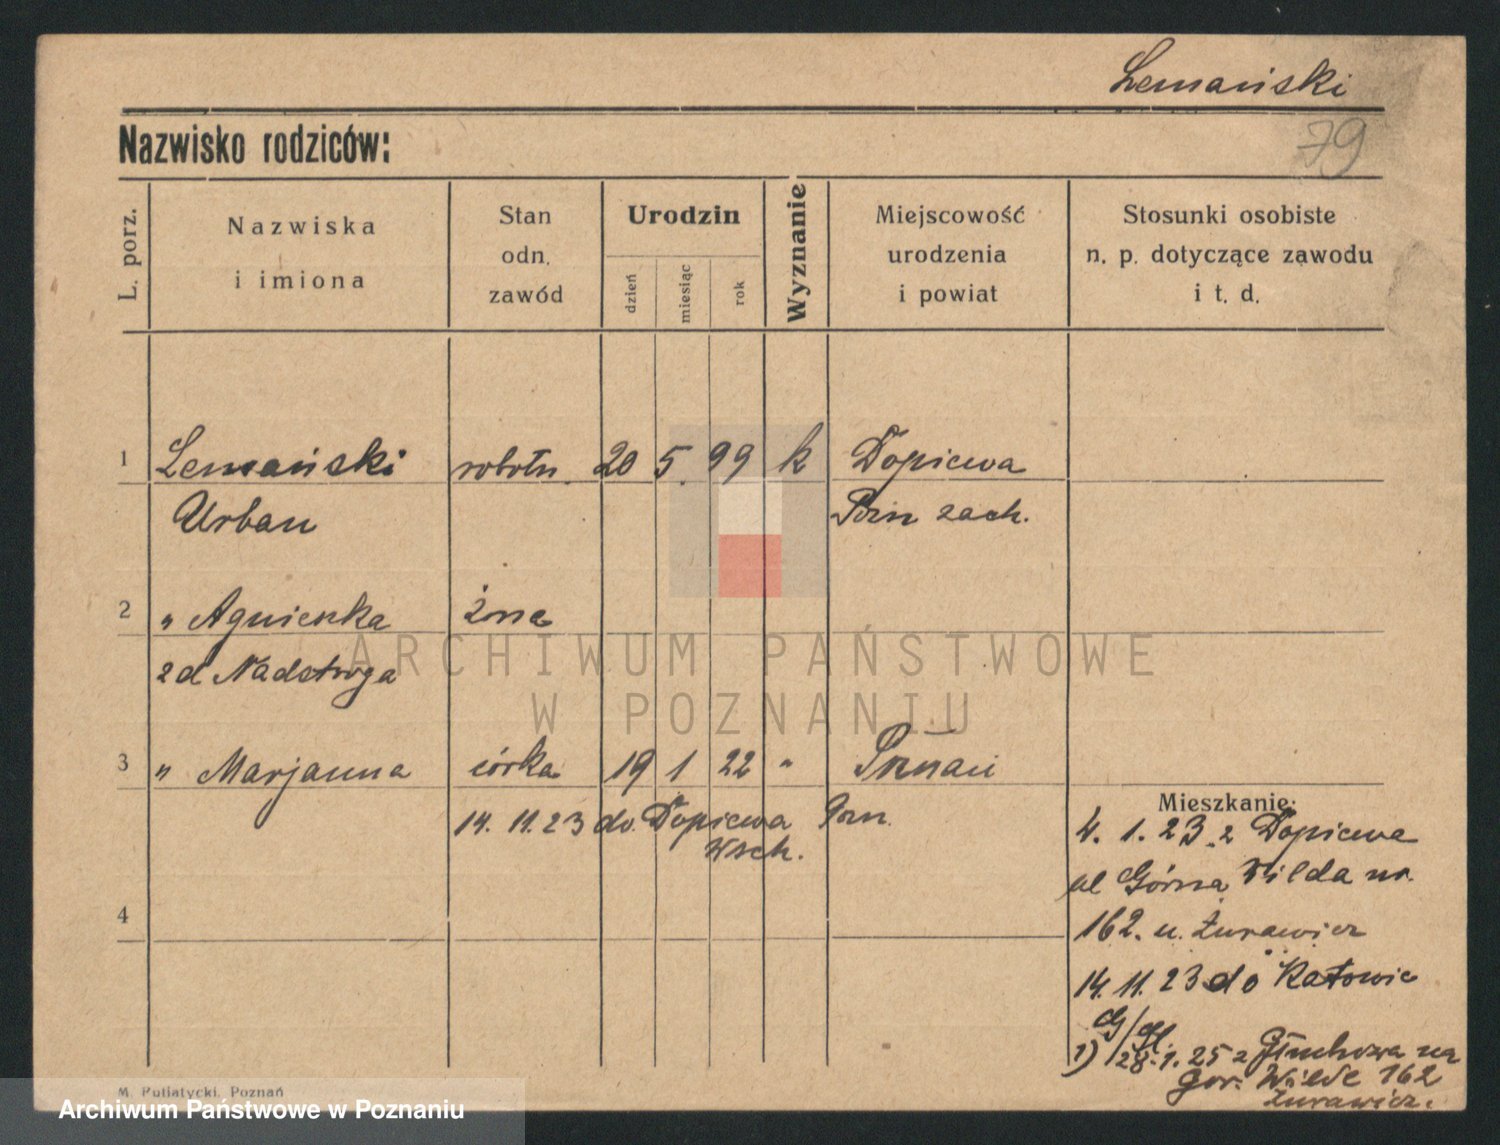 Lemański
Nazwisko rodziców:
79
L. porz.
Nazwiska
i imiona
Stan
odn.
zawód
Urodzin
dzień
miesiąc
rok
Wyznanie
Miejscowość
urodzenia
i powiat
Stosunki osobiste
n. p. dotyczące zawodu
i t. d.
1 Lemański robotn. 20 5. 99 k Dopiewa
Urban Pozn zach.
2 " Agnieszka żona
zd Nadstroga
3 " Marjanna córka 19 1 22 " Poznań
14. 11. 23 do Dopiewa Pozn.
Wsch.
Mieszkanie:
4. 1. 23 z Dopiewa
ul Górna Wilda nr.
162. u. Żurawicz
14. 11. 23 do Katowic
1) 28. 1. 25 z Głuchowa na
Gór. Wilde 162
Żurawicz.
4
M. Putiatycki, Poznań
ARCHIWUM PAŃSTWOWE
W POZNANIU
Archiwum Państwowe w Poznaniu